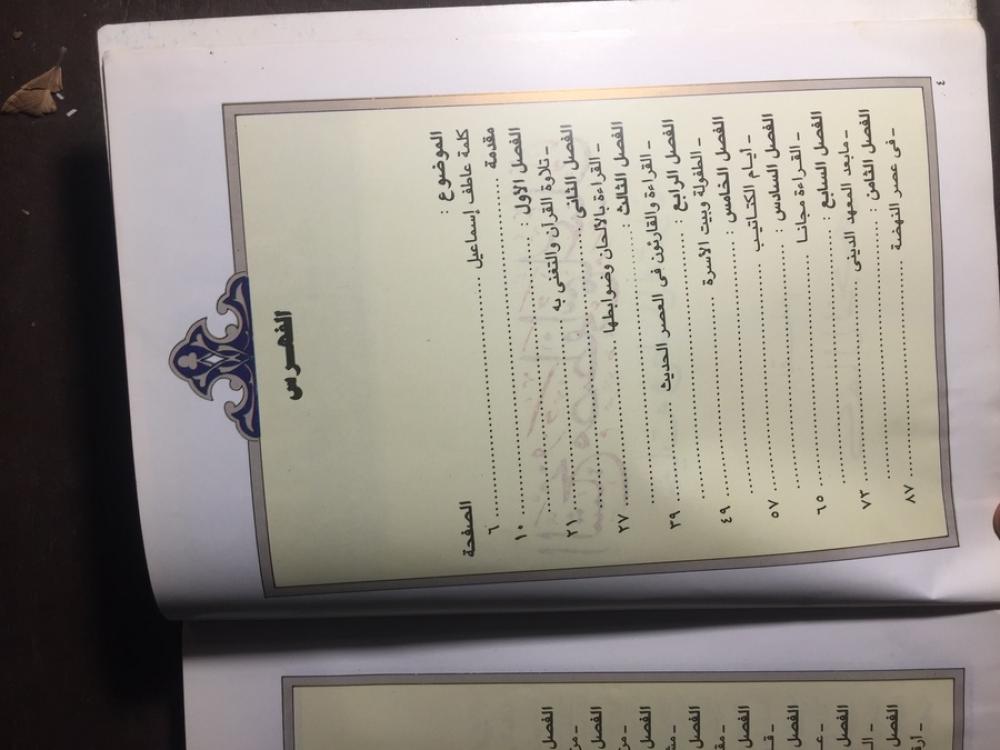 ٤
الفهـرس
الموضوع : الصفحة
كلمة عاطف إسماعيل ........ ٦
مقدمة ........ ١٠
الفصل الأول : ........
- تلاوة القرآن والتغنى به ........ ٢١
الفصل الثانى : ........
- القراءة بالألحان وضوابطها ........ ٢٧
الفصل الثالث : ........
- القراءة والقارئون فى العصر الحديث ........ ٣٩
الفصل الرابع : ........
- الطفولة وبيت الأسرة ........ ٤٩
الفصل الخامس : ........
- أيـام الكتـاتيب ........ ٥٧
الفصل السادس : ........
- القـراءة مجانـا ........ ٦٥
الفصل السابع : ........
- مابعد المعهد الدينى ........ ٧٣
الفصل الثامن : ........
- فى عصر النهضة ........ ٨٧
الفصل
الفصل
الفصل
الفصل
الفصل
الفصل
الفصل